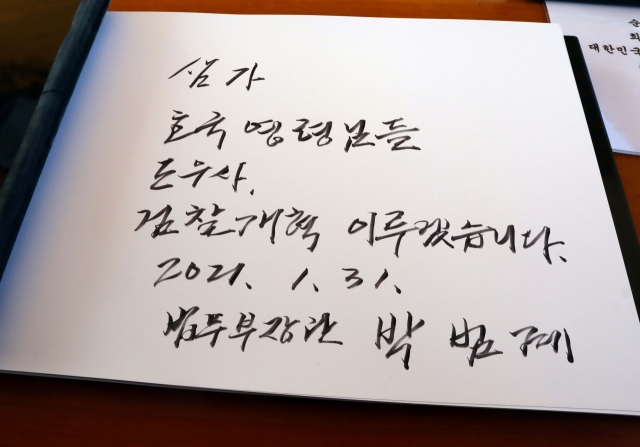 삼가
호국영령님들
도우사,
검찰개혁 이루겠습니다.
2021. 1. 31.
법무부장관 박범계
순
희
대한민국